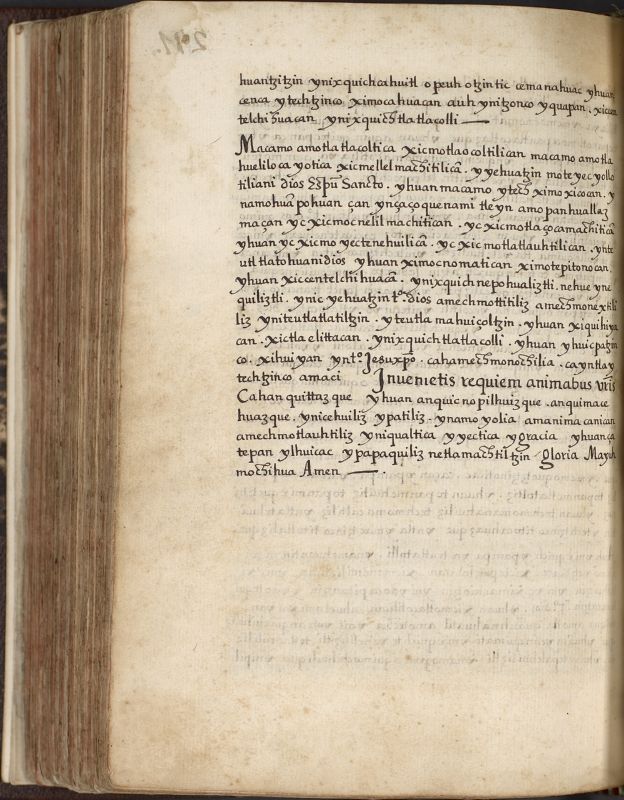 huantzitzin ynixquichcahuitl opeuh otzintic cemanahuac yhuan
cenca ytechtzinco ximocahuacan auh ynitzonco yquapan . xiccen
telchihuacan ynixquich tlatlacolli —
Macamo amotlatlacoltica xicmotlaocoltilican macamo amotla
huelilocayotica xicmellelmachitilicã . yyehuatzin moteyecyollo
tiliani dios Spũ Sancto . yhuan macamo ytech ximoxicocan . y
namohuãpohuan çan ynçaçoquenami tleyn amopanhuallaz
maçan yc xicmocnelilmachitican . yc xicmotlaçocamachiticã
yhuan yc xicmoyectenehuilicã . yc xicmotlatlauhtilican . ynte
utl tlatohuani dios yhuan ximocnomatican ximotepitonocan .
yhuan xiccentelchihuacã . ynixquich nepohualiztli . nehueyne
quiliztli . ynic yehuatzin tº . dios amechmottitiliz amechmonextili
liz yniteutlatlatiltzin . yteutlamahuiçoltzin . yhuan xiquihiya
can . xictlaelittacan . ynixquich tlatlacolli . yhuan yhuicpatzin
co . xihuiyan yntº . Jesuxpo . cahamechmonochilia . ca yntlay
techtzinco amaci Invenietis requiem animabus vrĩs
Cahanquittazque yhuan anquicnopilhuizque . anquimace
huazque . ynicehuiliz ypatiliz . ynamoyolia amanimacanican
amechmotlauhtiliz yniqualtica yyectica ygracia yhuan ça
tepan ylhuicac ypapaquiliz netlamachtiltzin gloria Mayuh
mochihua Amen — .